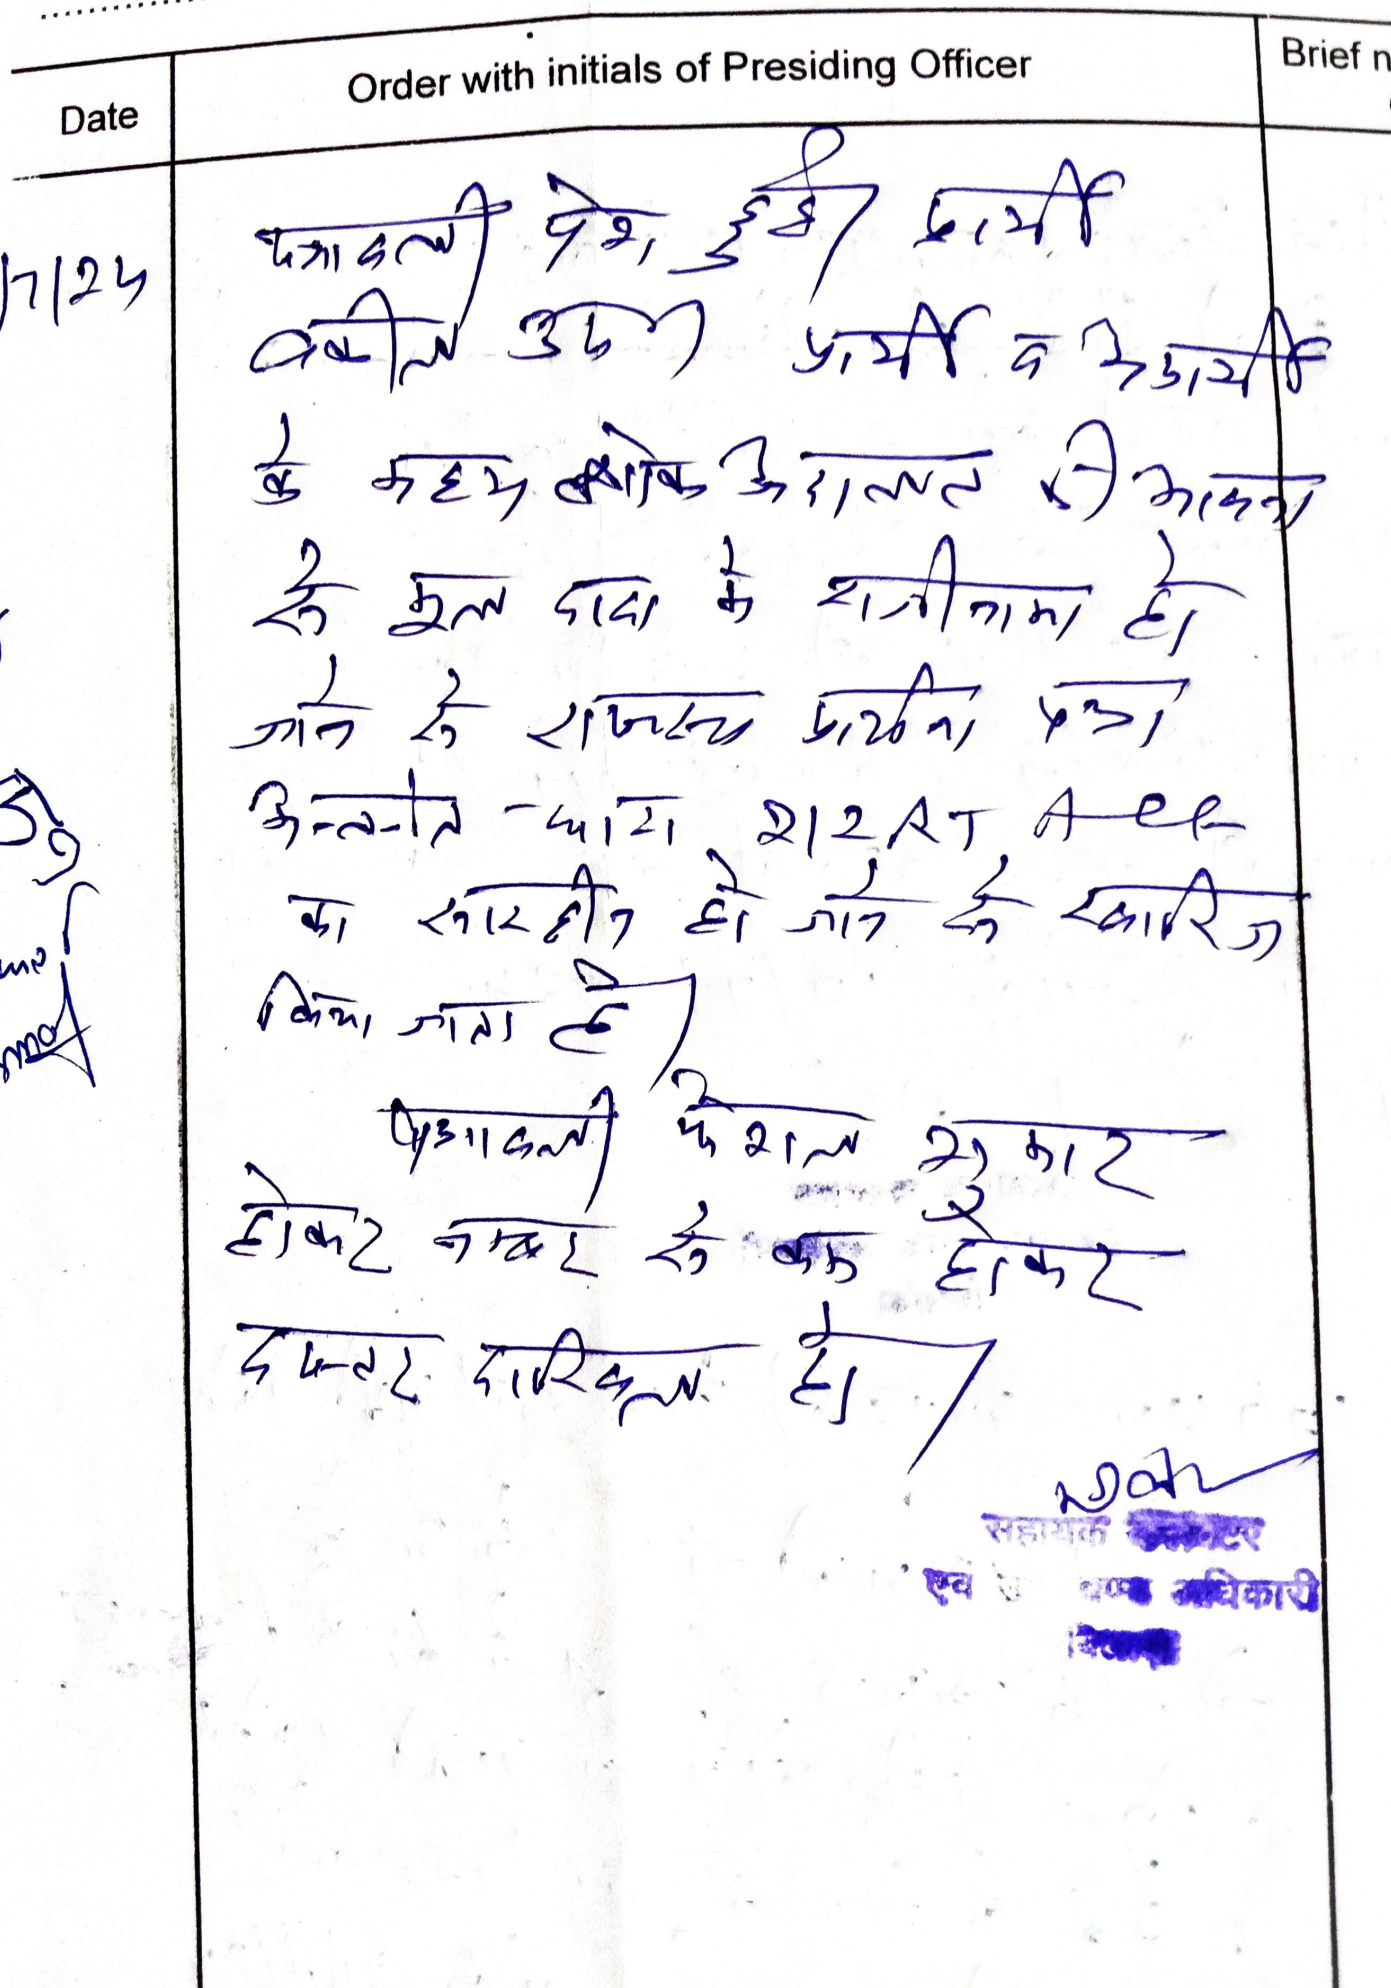 Date
Order with initials of Presiding Officer
Brief n
/7/24
पत्रावली पेश हुई। प्रार्थी
वकील उप। प्रार्थी व अप्रार्थी
के मध्य लोक अदालत की भावना
से मूल दावा के राजीनामा हो
जाने से राजस्व प्रार्थना पत्र
अन्तर्गत धारा 212 RT Act
का सारहीन हो जाने से खारिज
किया जाता है।
पत्रावली फैशल शुमार
होकर नम्बर से कम होकर
दफ्तर दाखिल हो।
सहायक
एवं अधिकारी